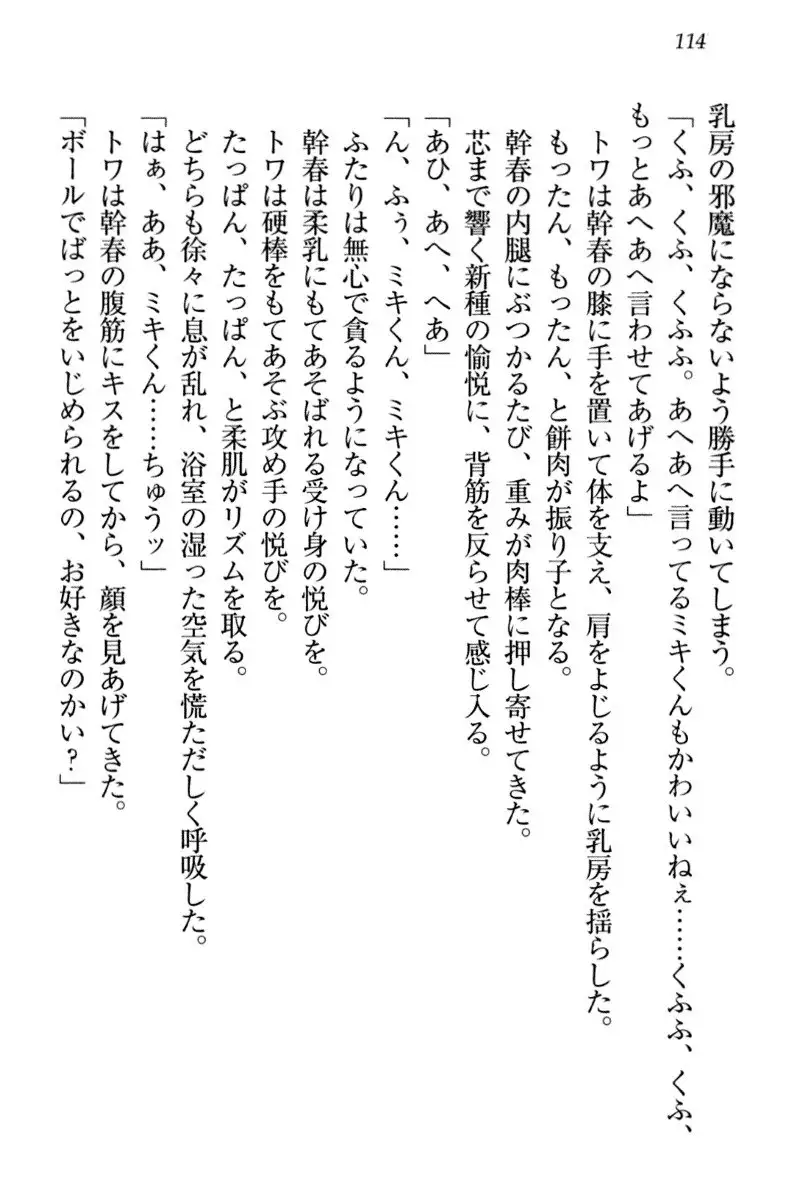 114
乳房の邪魔にならないよう勝手に動いてしまう。
「くふ、くふ、くふふ。あへあへ言ってるミキくんもかわいいねぇ……くふふ、くふ、
もっとあへあへ言わせてあげるよ」
トワは幹春の膝に手を置いて体を支え、肩をよじるように乳房を揺らした。
もったん、もったん、と餅肉が振り子となる。
幹春の内腿にぶつかるたび、重みが肉棒に押し寄せてきた。
芯まで響く新種の愉悦に、背筋を反らせて感じ入る。
「あひ、あへ、へあ」
「ん、ふぅ、ミキくん、ミキくん……」
ふたりは無心で貪るようになっていた。
幹春は柔乳にもてあそばれる受け身の悦びを。
トワは硬棒をもてあそぶ攻め手の悦びを。
たっぱん、たっぱん、と柔肌がリズムを取る。
どちらも徐々に息が乱れ、浴室の湿った空気を慌ただしく呼吸した。
「はぁ、ああ、ミキくん……ちゅうッ」
トワは幹春の腹筋にキスをしてから、顔を見あげてきた。
「ボールでばっとをいじめられるの、お好きなのかい？」